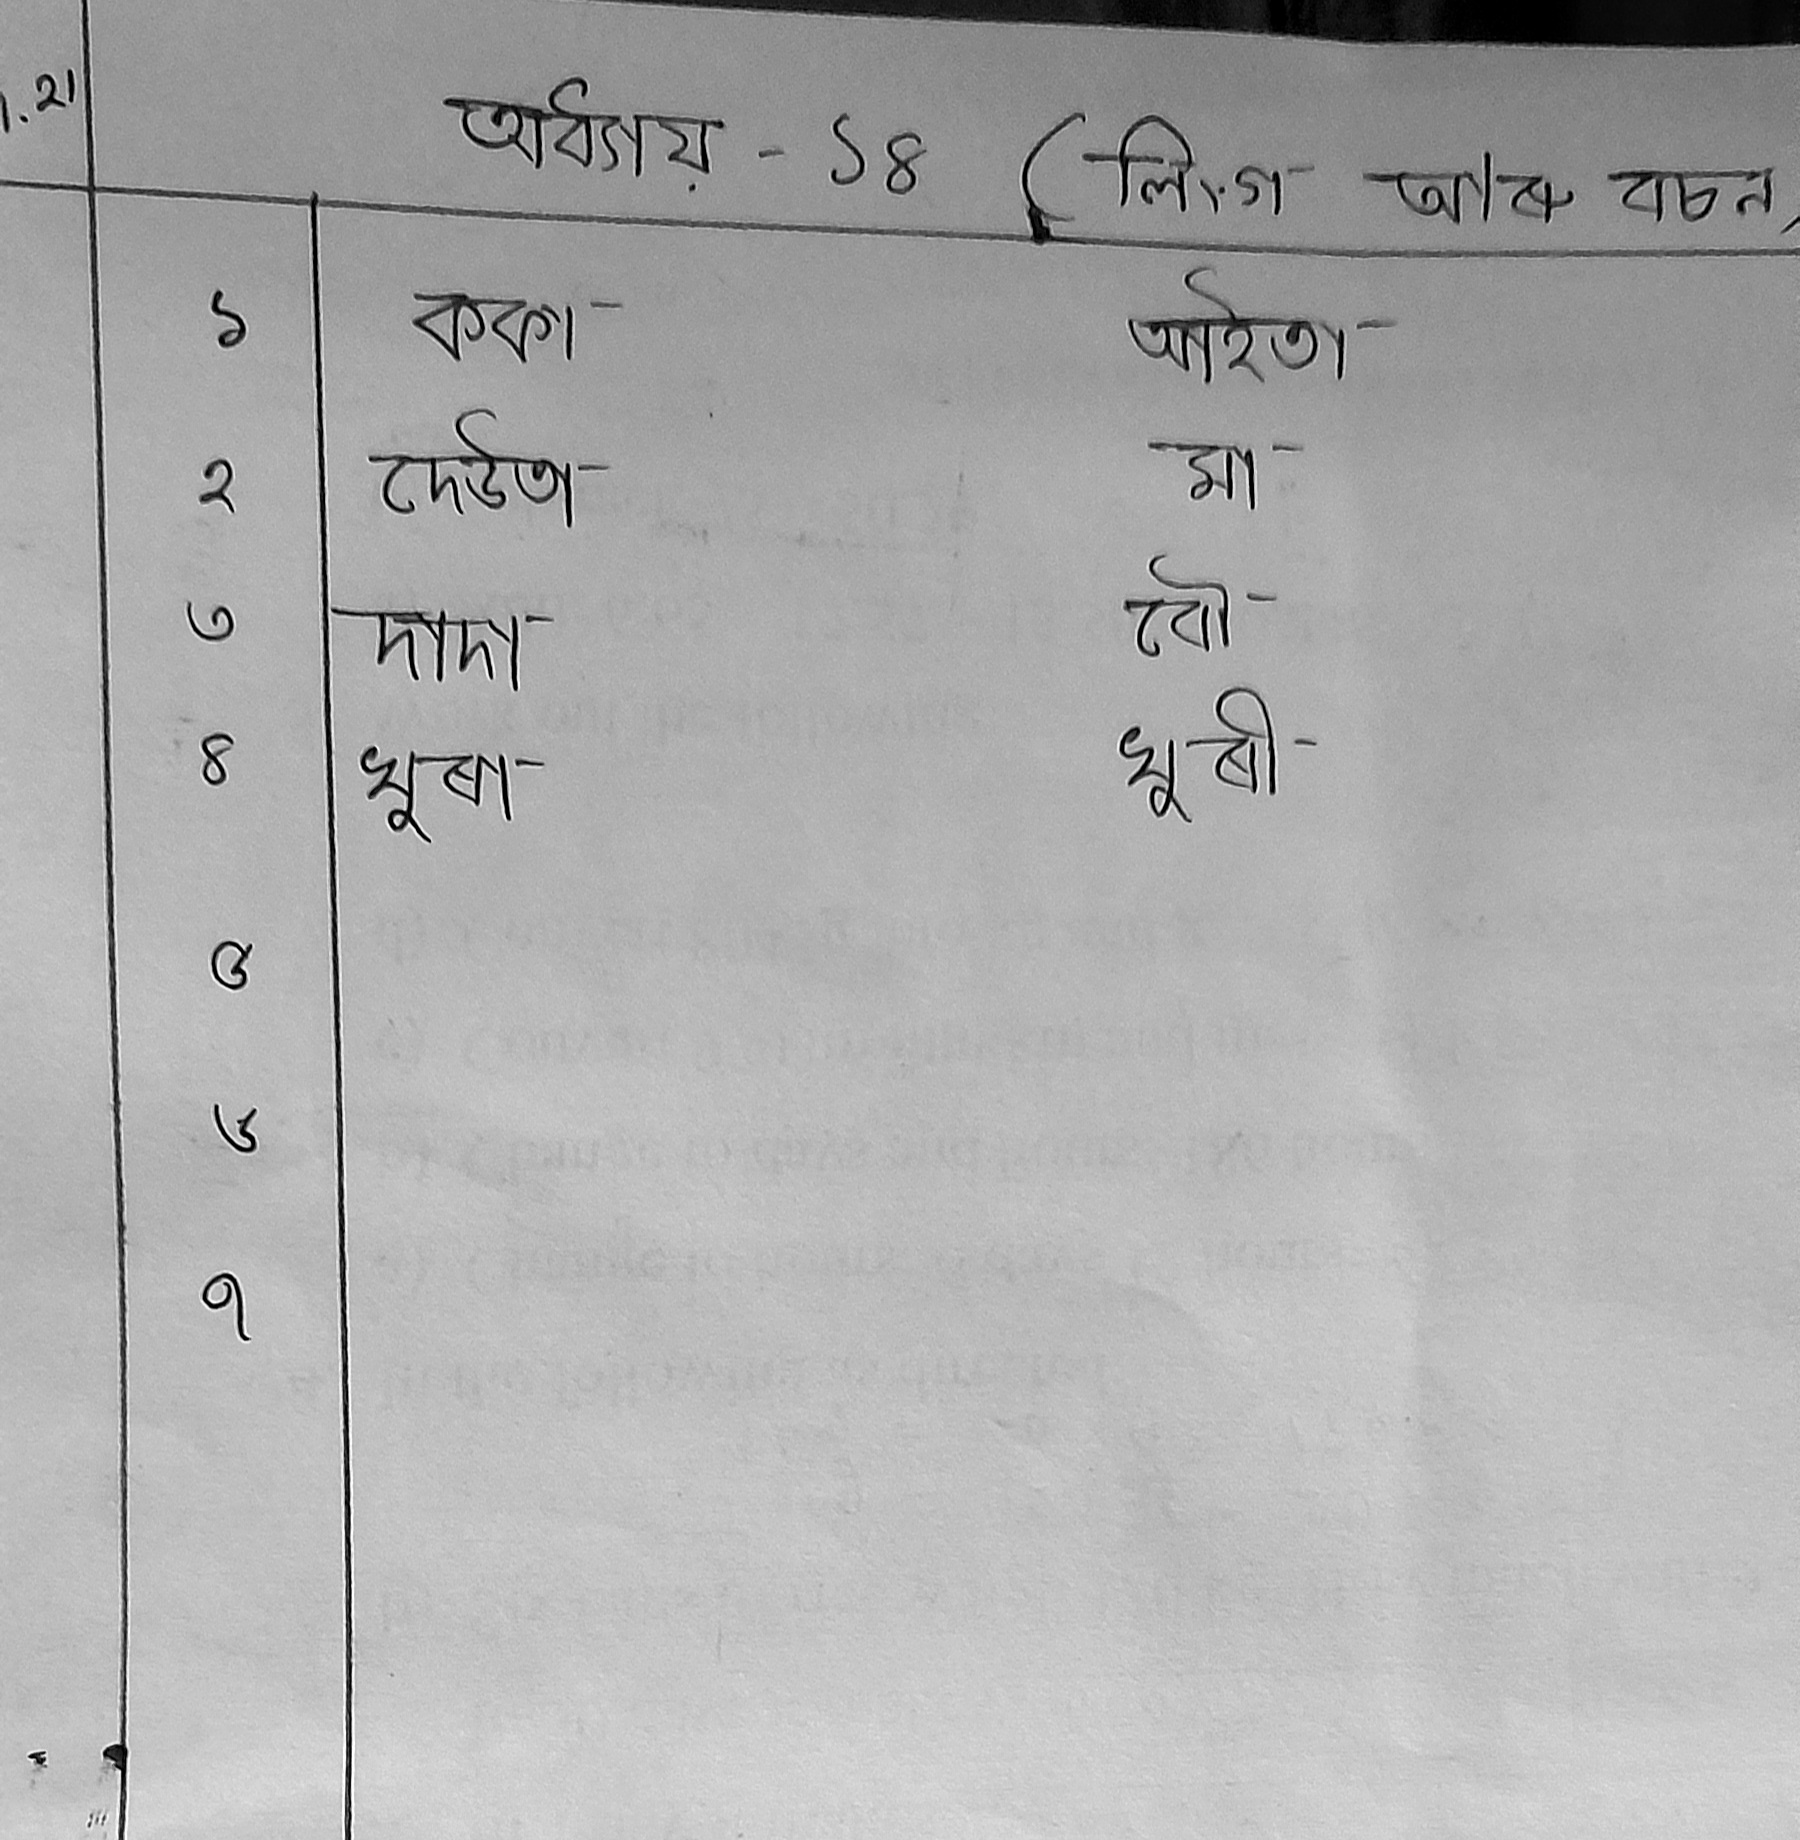 অধ্যায় - ১৪ (লিংগ আৰু বচন
১ ককা আইতা
২ দেউতা মা
৩ দাদা বৌ
৪ খুৰা খুৰী
৫
৬
৭